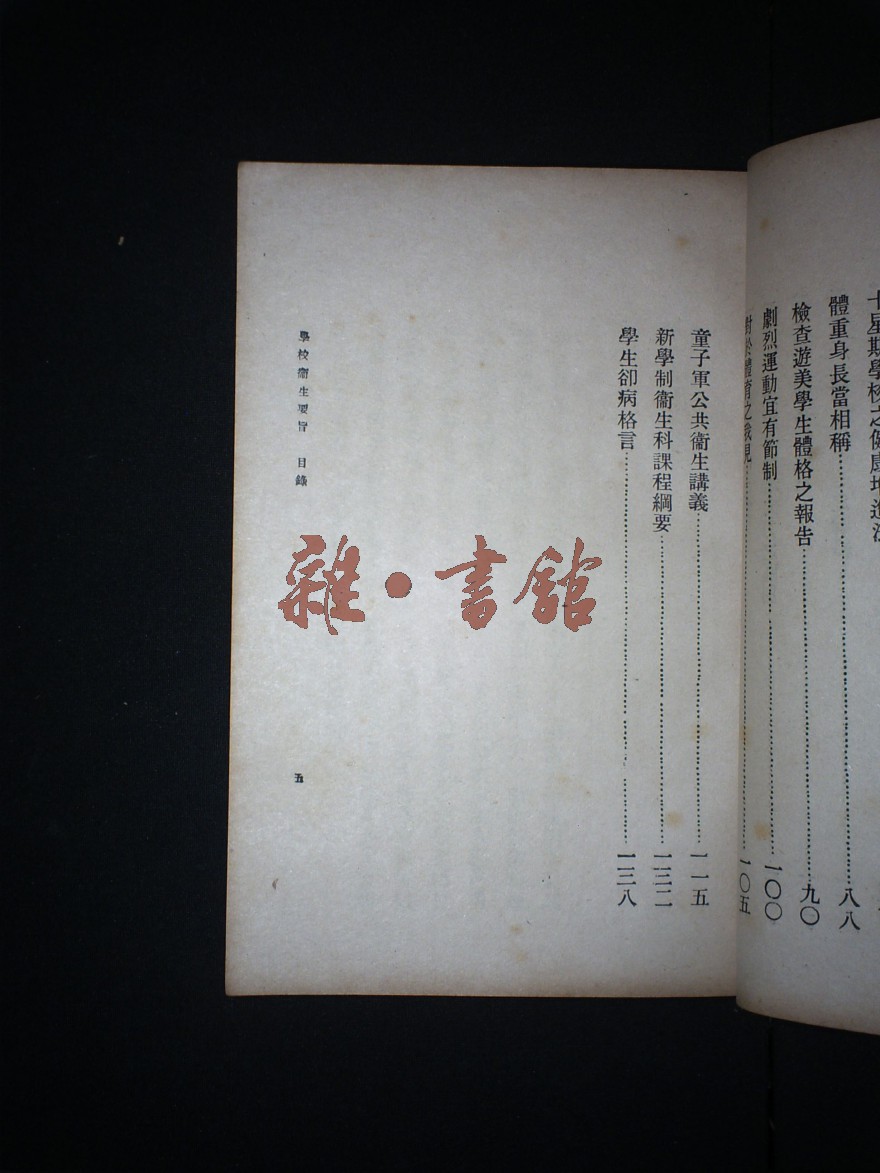 體重身長當相稱……八八
檢查遊美學生體格之報告……九〇
劇烈運動宜有節制……一〇〇
對於體育之我見……一〇五
童子軍公共衞生講義……一一五
新學制衞生科課程綱要……一三二
學生卻病格言……一三八
學校衞生要旨 目錄
五
雜•書館